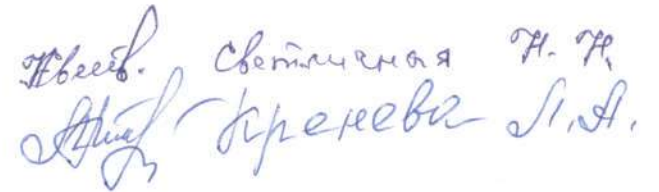 Светличная Н. Н.
Кренева Л. А.